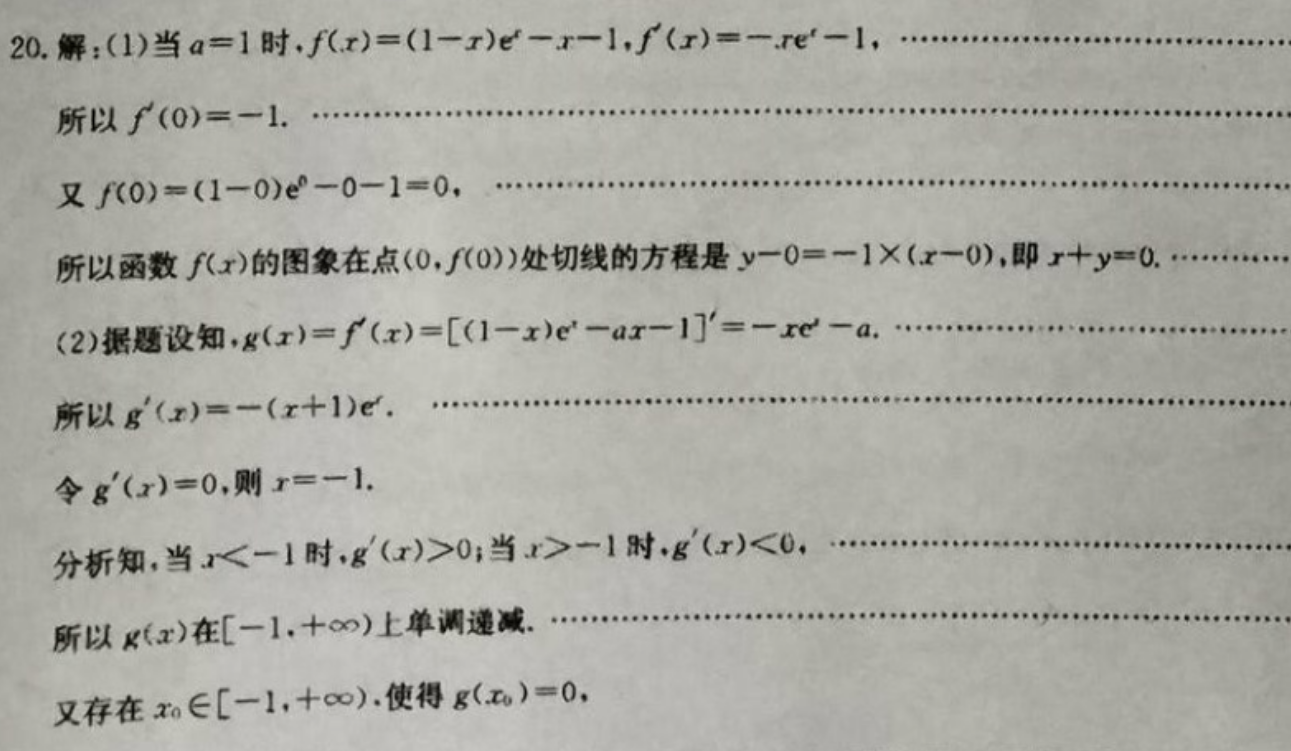 20. 解:(1)当 a=1 时,f(x)=(1-x)eˣ-x-1,f′(x)=-xeˣ-1, ……
所以 f′(0)=-1. ……
又 f(0)=(1-0)e⁰-0-1=0, ……
所以函数 f(x)的图象在点(0,f(0))处切线的方程是 y-0=-1×(x-0),即 x+y=0. ……
(2)据题设知,g(x)=f′(x)=[(1-x)eˣ-ax-1]′=-xeˣ-a. ……
所以 g′(x)=-(x+1)eˣ. ……
令 g′(x)=0,则 x=-1.
分析知,当 x<-1 时,g′(x)>0;当 x>-1 时,g′(x)<0, ……
所以 g(x)在[-1,+∞)上单调递减. ……
又存在 x₀∈[-1,+∞),使得 g(x₀)=0,